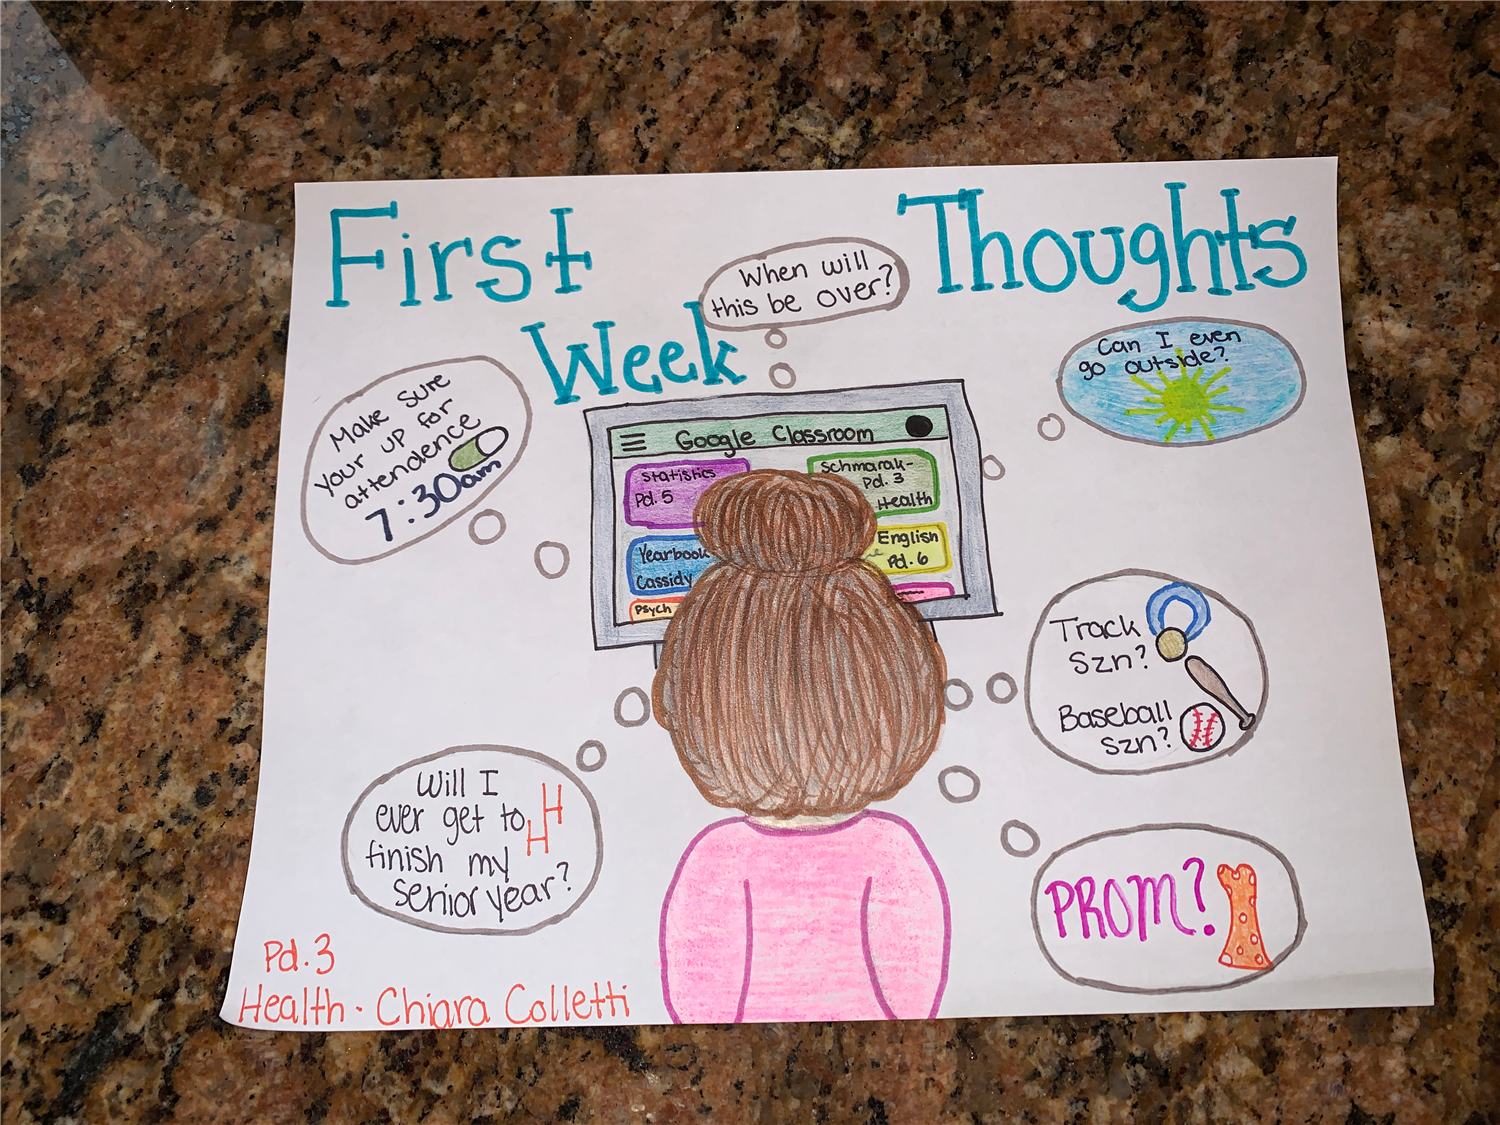 First
Week
Thoughts
When will
this be over?
Can I even
go outside?
Make sure
your up for
attendence
7:30am
Google Classroom
Statistics
Pd. 5
Schmarak-
Pd. 3
Health
Yearbook
Cassidy
English
Pd. 6
Psych
Track
Szn?
Baseball
Szn?
Will I
ever get to
finish my
senior year?
HH
PROM?
Pd. 3
Health - Chiara Colletti